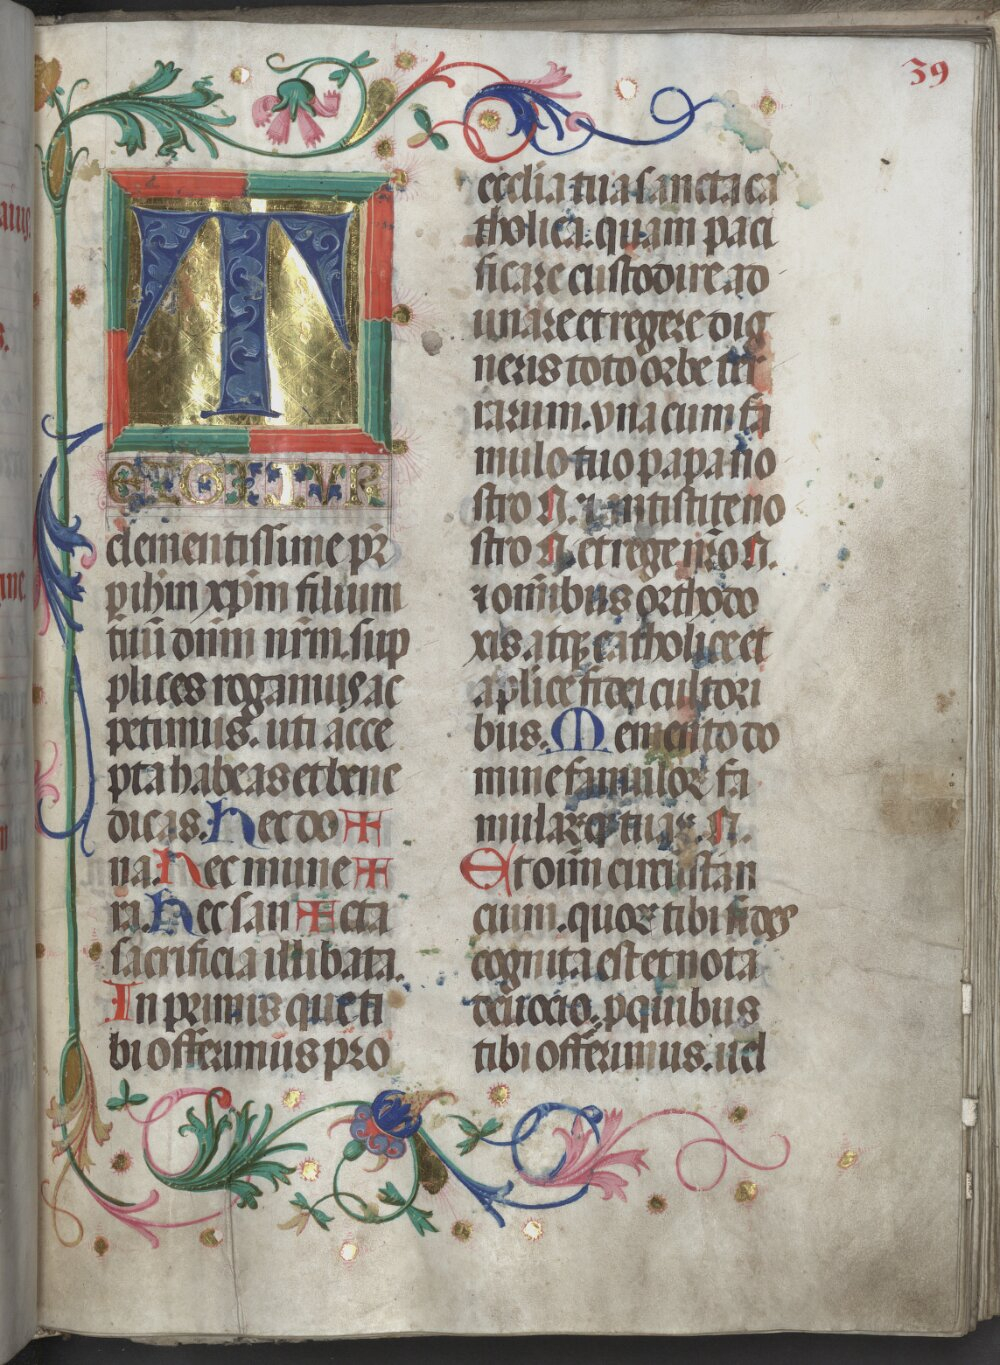 39
T
E IGITVR
clementissime pr̄
p ihm xp̄m filium
tuū dnm̄ nr̄m. sup
plices rogamus ac
petimus. uti acce
pta habeas et bene
dicas. Hec do ✠
na. Hec mune ✠
ra. Hec san ✠ cta
sacrificia illibata.
In primis que ti
bi offerimus pro
ecclia tua sancta ca
tholica. quam paci
ficare custodire ad
unare et regere dig
neris toto orbe ter
rarum. vna cum fa
mulo tuo papa no
stro N. ⁊ antistite no
stro N. et rege nr̄o N.
⁊ omībus orthodo
xis. atqꝫ catholice et
aplice fidei cultori
bus. Memento do
mine famuloꝝ fa
mularūqꝫ tuaꝝ N.
Et oīm circūstan
cium. quoꝝ tibi fides
cognita est et nota
deuocio. p quibus
tibi offerimus. uel